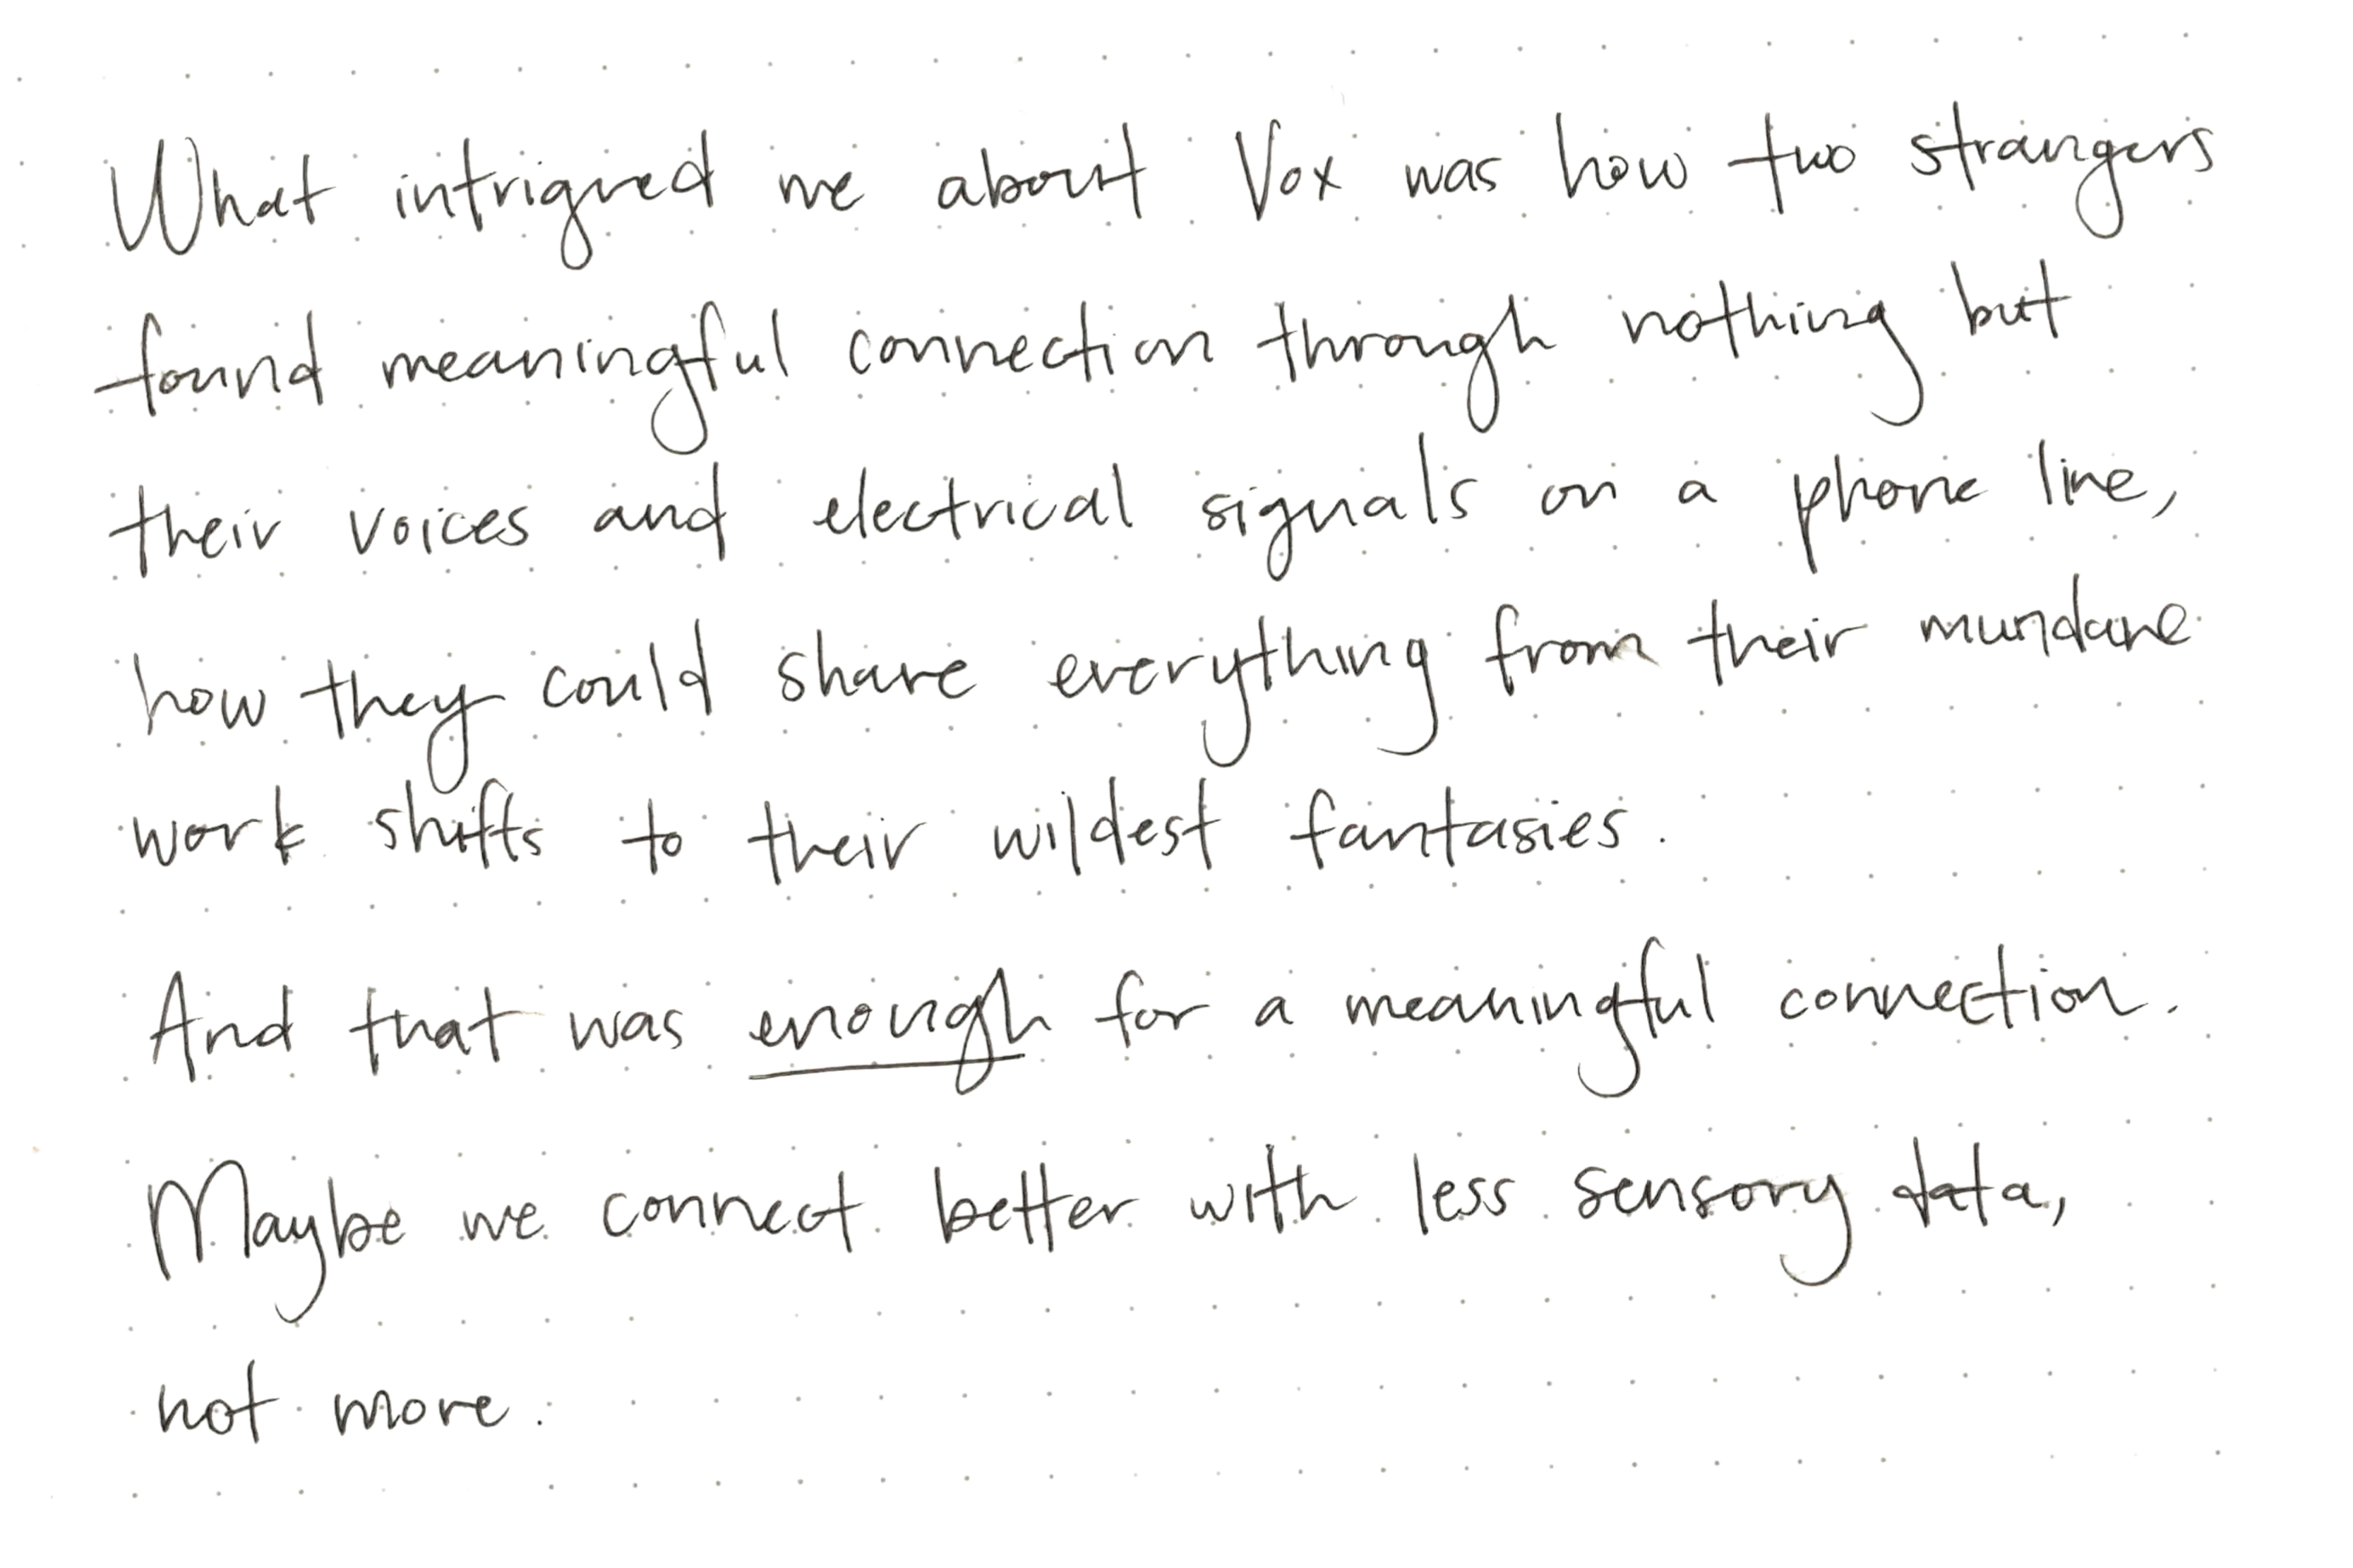 What intrigued me about Vox was how two strangers
found meaningful connection through nothing but
their voices and electrical signals on a phone line,
how they could share everything from their mundane
work shifts to their wildest fantasies.
And that was enough for a meaningful connection.
Maybe we connect better with less sensory data,
not more.